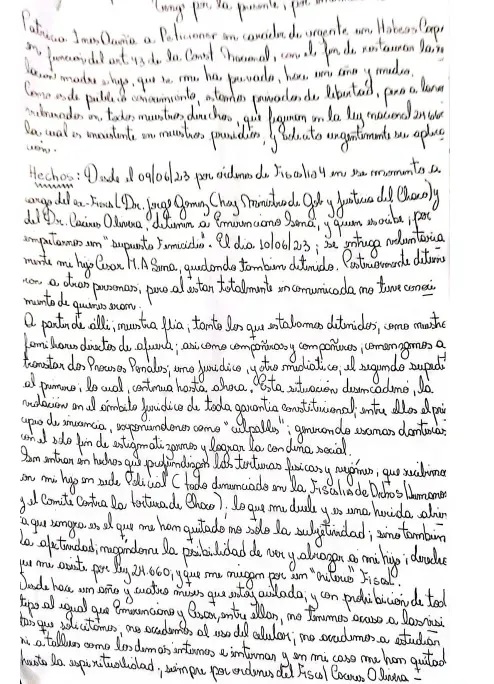 vengo por la presente, por
Patricia Ines Acuña a Peticionar en caracter de urgente un Habeas Corpus
en funcion del art 43 de la Const Nacional, con el fin de restaurar
madre e hijo, que se me ha privado, hace un año y medio.
Como es de publico conocimiento, estamos privados de libertad, pero a la vez
en todos nuestros derechos, que figuran en la ley nacional 24660
la cual es inexistente en nuestros presidios, y solicito urgentemente su aplica
cion.
Hechos: Desde el 09/06/23 por ordenes de Fiscalia 4 en ese momento a
cargo del ex-Fiscal (Dr. Jorge Gomez, Chaq Ministro de Gob y Justicia del Chaco) y
del Dr. Caceres Olivera, detienen a Emerenciano Sena, y quien escribe, por
imputarnos un "supuesto Femicidio". El dia 10/06/23; se entrega voluntaria
mente mi hijo Cesar M.A Sena, quedando tambien detenido. Posteriormente detuvie
ron a otras personas, pero al estar totalmente incomunicada no tuve conoci
miento de quienes eran.
A partir de alli, nuestra flia; tanto los que estabamos detenidos, como nuestros
familiares directos de afuera; asi como compañeros y compañeras, comenzamos a
transitar dos Procesos Penales; uno juridico, y otro mediatico, el segundo supedi
al primero; lo cual, continua hasta ahora. Esta situacion desencadeno, la
violacion en el ambito juridico de toda garantia constitucional; entre ellos el prin
cipio de inocencia, exponiendonos como "culpables"; generando escarnas
con el solo fin de estigmatizarnos y lograr la condena social.
Sin entrar en hechos que profundizan las torturas fisicas y vejamenes, que recibimos
en mi hijo en sede Policial (todo denunciado en la Fiscalia de Dchos Humanos
y el Comite Contra la tortura de Chaco), lo que me duele y es una herida abier
a que sangra es el que me han quitado no solo la subjetividad; sino tambien
la afectividad; negandome la posibilidad de ver y abrazar a mi hijo; derecho
que me asiste por ley 24.660; y que me niegan por un "criterio" Fiscal.
Desde hace un año y cuatro meses que estoy aislada, y con prohibicion de todo
tipo al igual que Emerenciano y Cesar, entre ellos, no tenemos acceso a las visi
tas que solicitamos, no accedemos al uso del celular; no accedemos a estudiar,
ni a talleres como los demas internos e internas y en mi caso me han quitado
hasta la espiritualidad; siempre por ordenes del Fiscal Caceres Olivera -